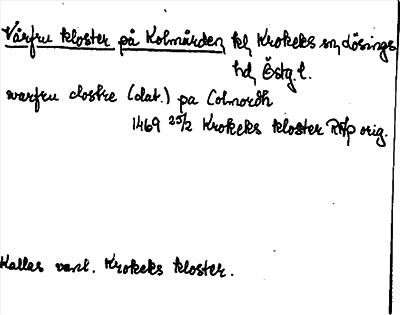 Vårfru kloster på Kolmården, kl, Krokeks sn, Lösings
hd, Östg.l.
warfru clostre (dat.) pa Colmordh
1469 25/2 Krokeks kloster RAp orig.
Kallas vanl. Krokeks kloster.